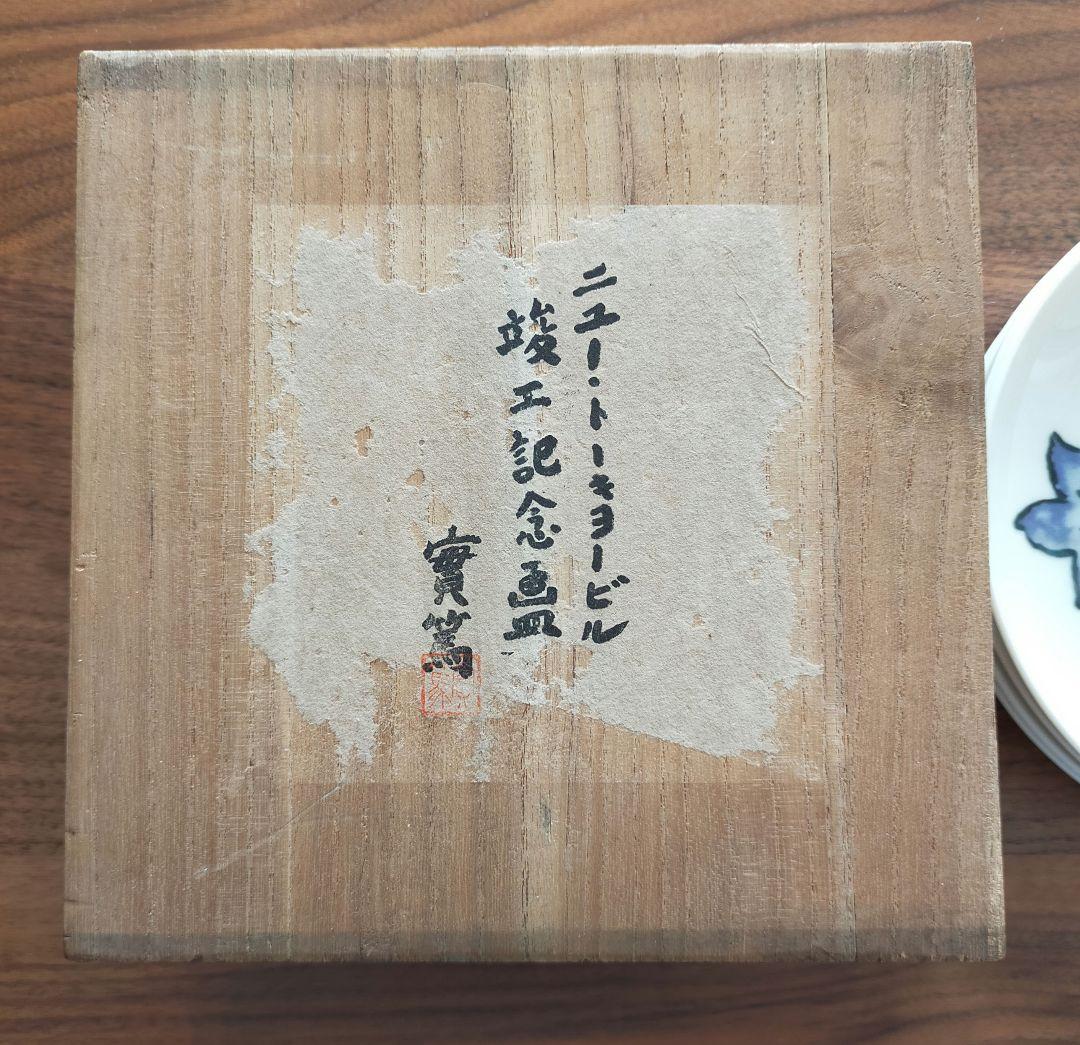 ニユー・トーキヨービル
竣工記念画皿
實篤